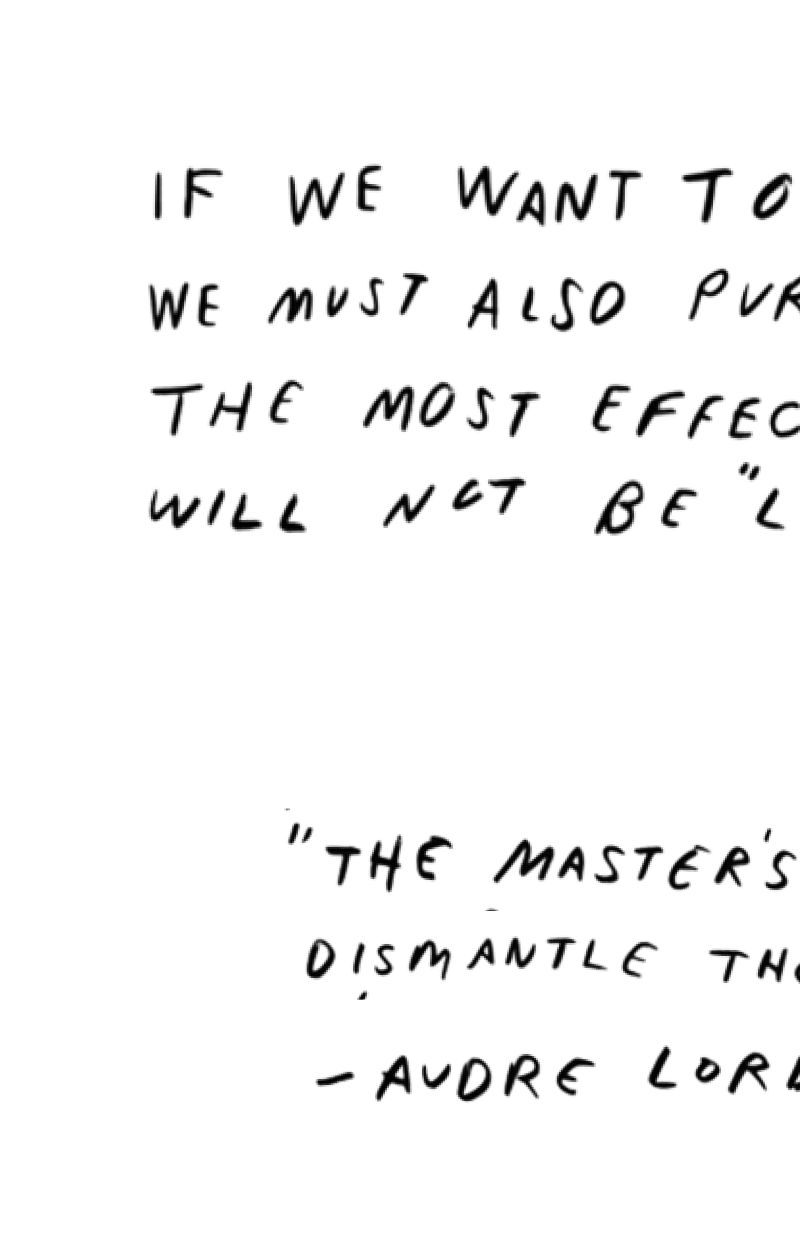 IF WE WANT TO
WE MUST ALSO PUR
THE MOST EFFEC
WILL NOT BE "L
"THE MASTER'S
DISMANTLE THE
— AUDRE LORD